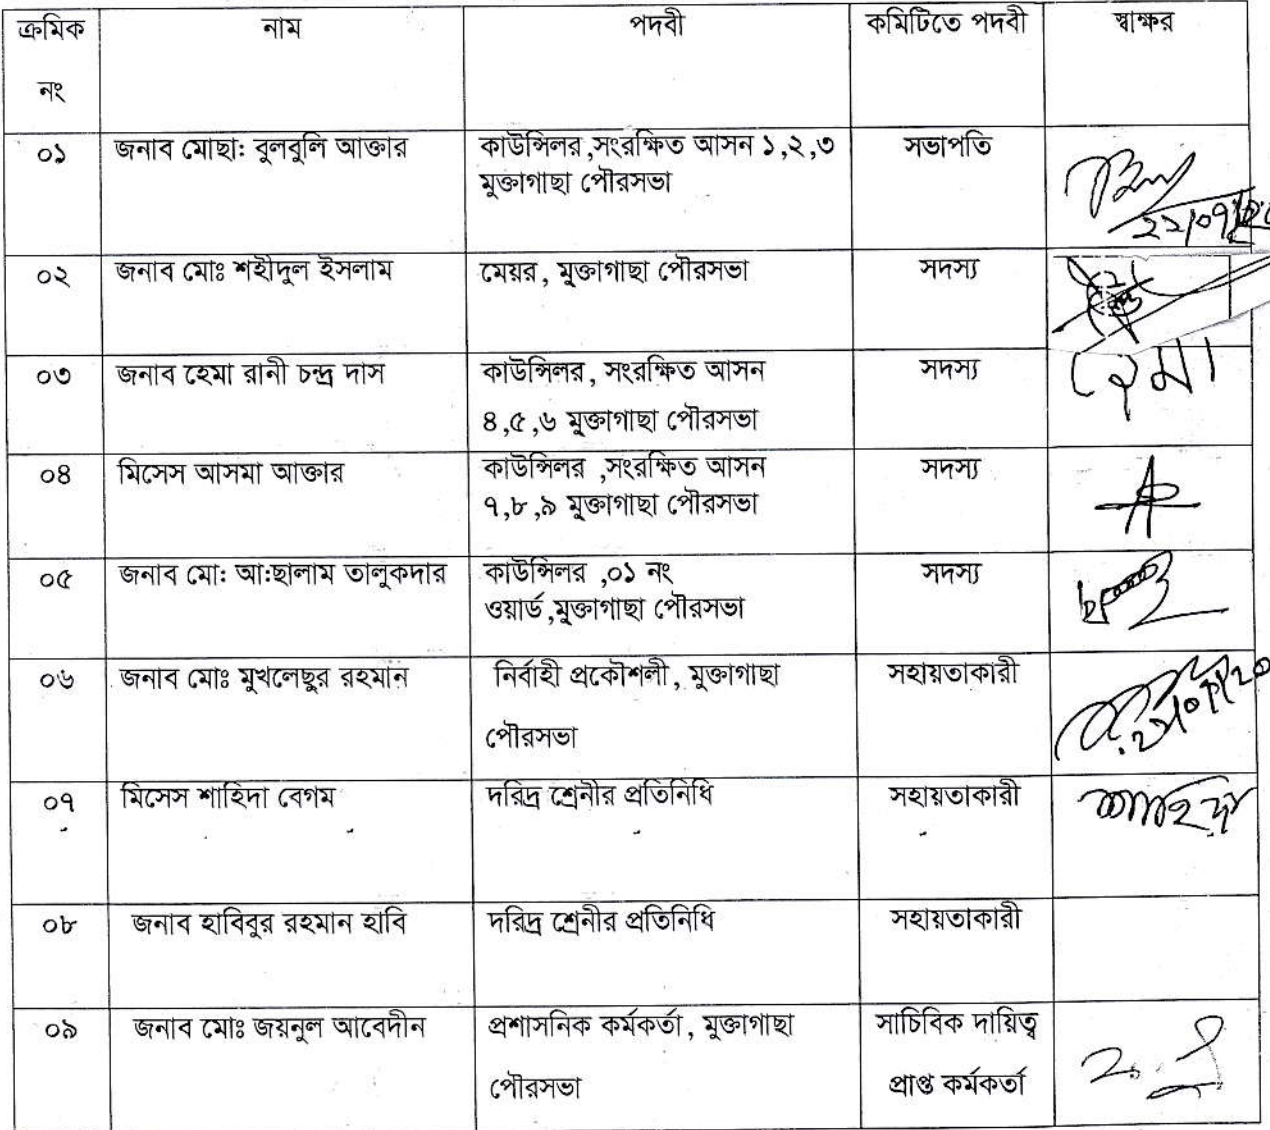 ক্রমিক নাম পদবী কমিটিতে পদবী স্বাক্ষর
নং
০১ জনাব মোছা: বুলবুলি আক্তার কাউন্সিলর ,সংরক্ষিত আসন ১,২,৩ সভাপতি
মুক্তাগাছা পৌরসভা
২২/০৭/২০
০২ জনাব মোঃ শহীদুল ইসলাম মেয়র, মুক্তাগাছা পৌরসভা সদস্য
০৩ জনাব হেমা রানী চন্দ্র দাস কাউন্সিলর, সংরক্ষিত আসন সদস্য হেমা
৪,৫,৬ মুক্তাগাছা পৌরসভা
০৪ মিসেস আসমা আক্তার কাউন্সিলর ,সংরক্ষিত আসন সদস্য
৭,৮,৯ মুক্তাগাছা পৌরসভা
০৫ জনাব মো: আ:ছালাম তালুকদার কাউন্সিলর ,০১ নং সদস্য
ওয়ার্ড,মুক্তাগাছা পৌরসভা
০৬ জনাব মোঃ মুখলেছুর রহমান নির্বাহী প্রকৌশলী, মুক্তাগাছা সহায়তাকারী
পৌরসভা
০৭ মিসেস শাহিদা বেগম দরিদ্র শ্রেনীর প্রতিনিধি সহায়তাকারী শাহিদা
০৮ জনাব হাবিবুর রহমান হাবি দরিদ্র শ্রেনীর প্রতিনিধি সহায়তাকারী
০৯ জনাব মোঃ জয়নুল আবেদীন প্রশাসনিক কর্মকর্তা, মুক্তাগাছা সাচিবিক দায়িত্ব
পৌরসভা প্রাপ্ত কর্মকর্তা